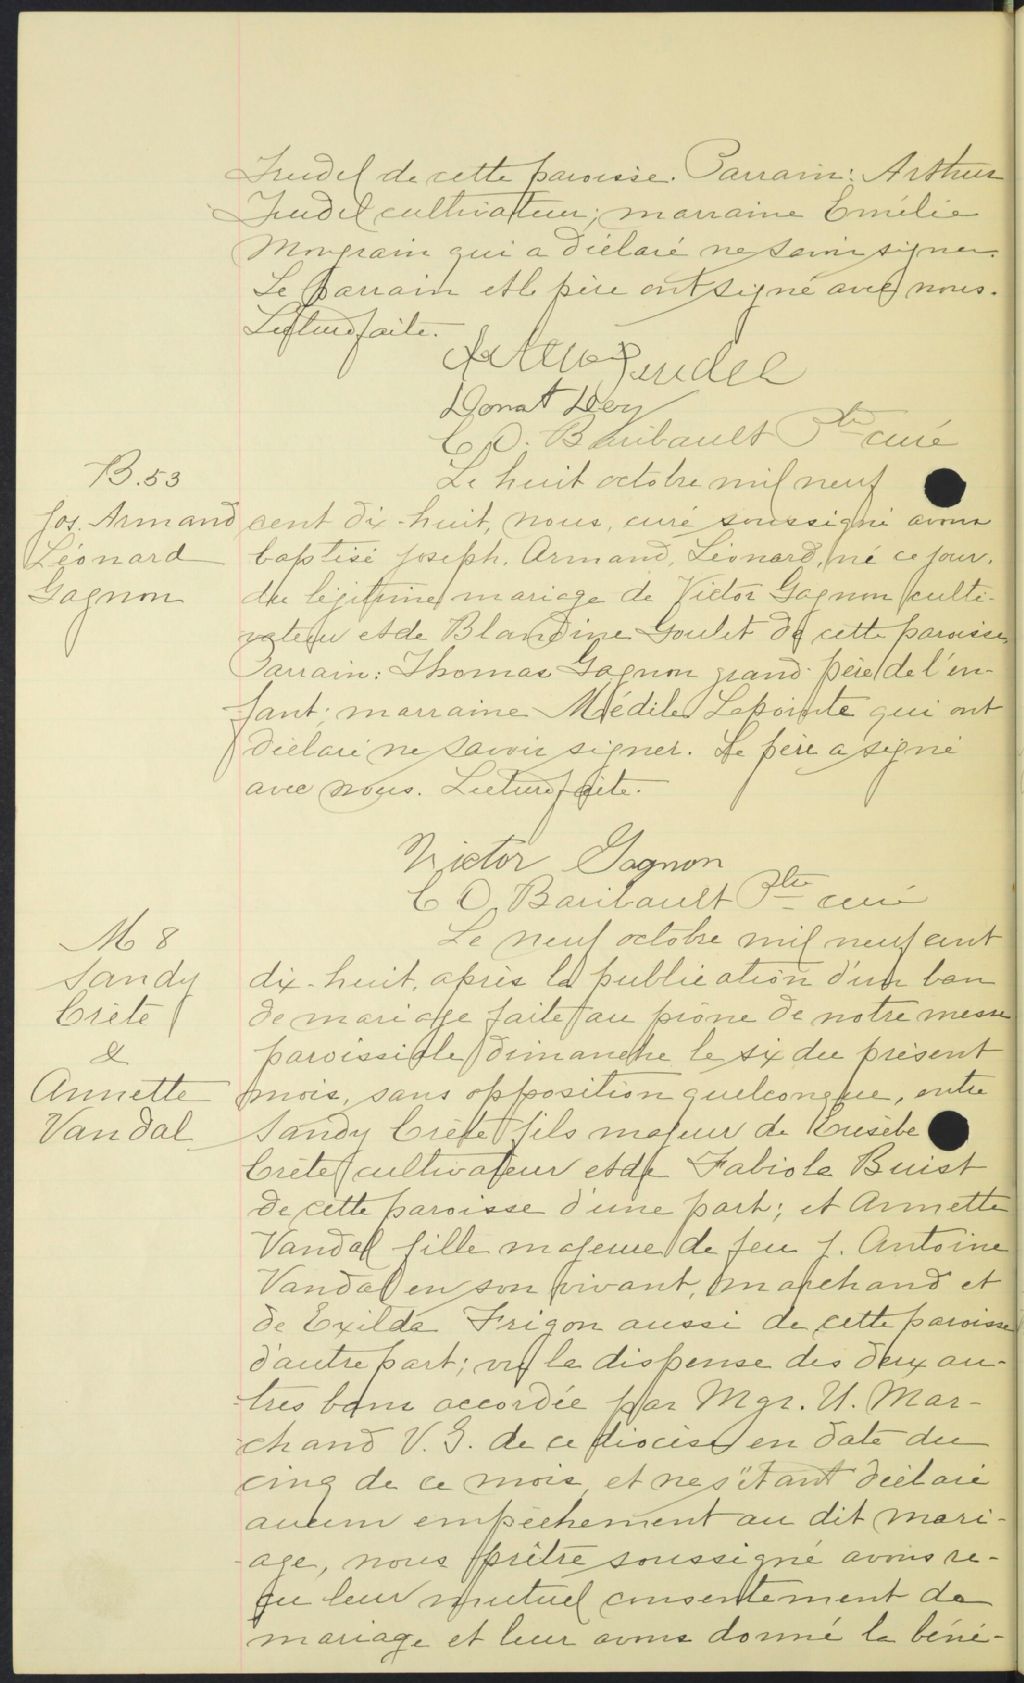 Trudel de cette paroisse. Parrain: Arthur
Trudel cultivateur; marraine Emélie
Mongrain qui a déclaré ne savoir signer.
Le parrain et le père ont signé avec nous.
Lecture faite.
Arthur Trudel
Donat Dery
C O. Baribault Ptre curé
B. 53
Jos. Armand
Léonard
Gagnon
Le huit octobre mil neuf
cent dix-huit, nous, curé soussigné avons
baptisé Joseph, Armand, Léonard, né ce jour,
du légitime mariage de Victor Gagnon culti-
vateur et de Blandine Goulet de cette paroisse.
Parrain: Thomas Gagnon grand-père de l'en-
fant; marraine Médile Lapointe qui ont
déclaré ne savoir signer. Le père a signé
avec nous. Lecture faite.
Victor Gagnon
C O. Baribault Ptre curé
M 8
Sandy
Crête
&
Annette
Vandal
Le neuf octobre mil neuf cent
dix-huit, après la publication d'un ban
de mariage faite au prône de notre messe
paroissiale dimanche le six du présent
mois, sans opposition quelconque, entre
Sandy Crête fils majeur de Eusèbe
Crête cultivateur et de Fabiola Buist
de cette paroisse d'une part; et Annette
Vandal fille majeure de feu J. Antoine
Vandal en son vivant, marchand et
de Exilda Frigon aussi de cette paroisse
d'autre part; vu la dispense des deux au-
tres bans accordée par Mgr. U. Mar-
chand V. G. de ce diocèse en date du
cinq de ce mois, et ne s'étant déclaré
aucun empêchement au dit mari-
age, nous prêtre soussigné avons re-
çu leur mutuel consentement de
mariage et leur avons donné la béné-